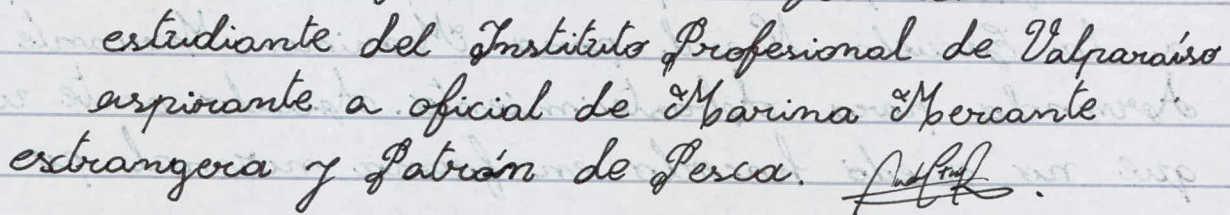 estudiante del Instituto Profesional de Valparaíso
aspirante a oficial de Marina Mercante
extrangera y Patrón de Pesca.